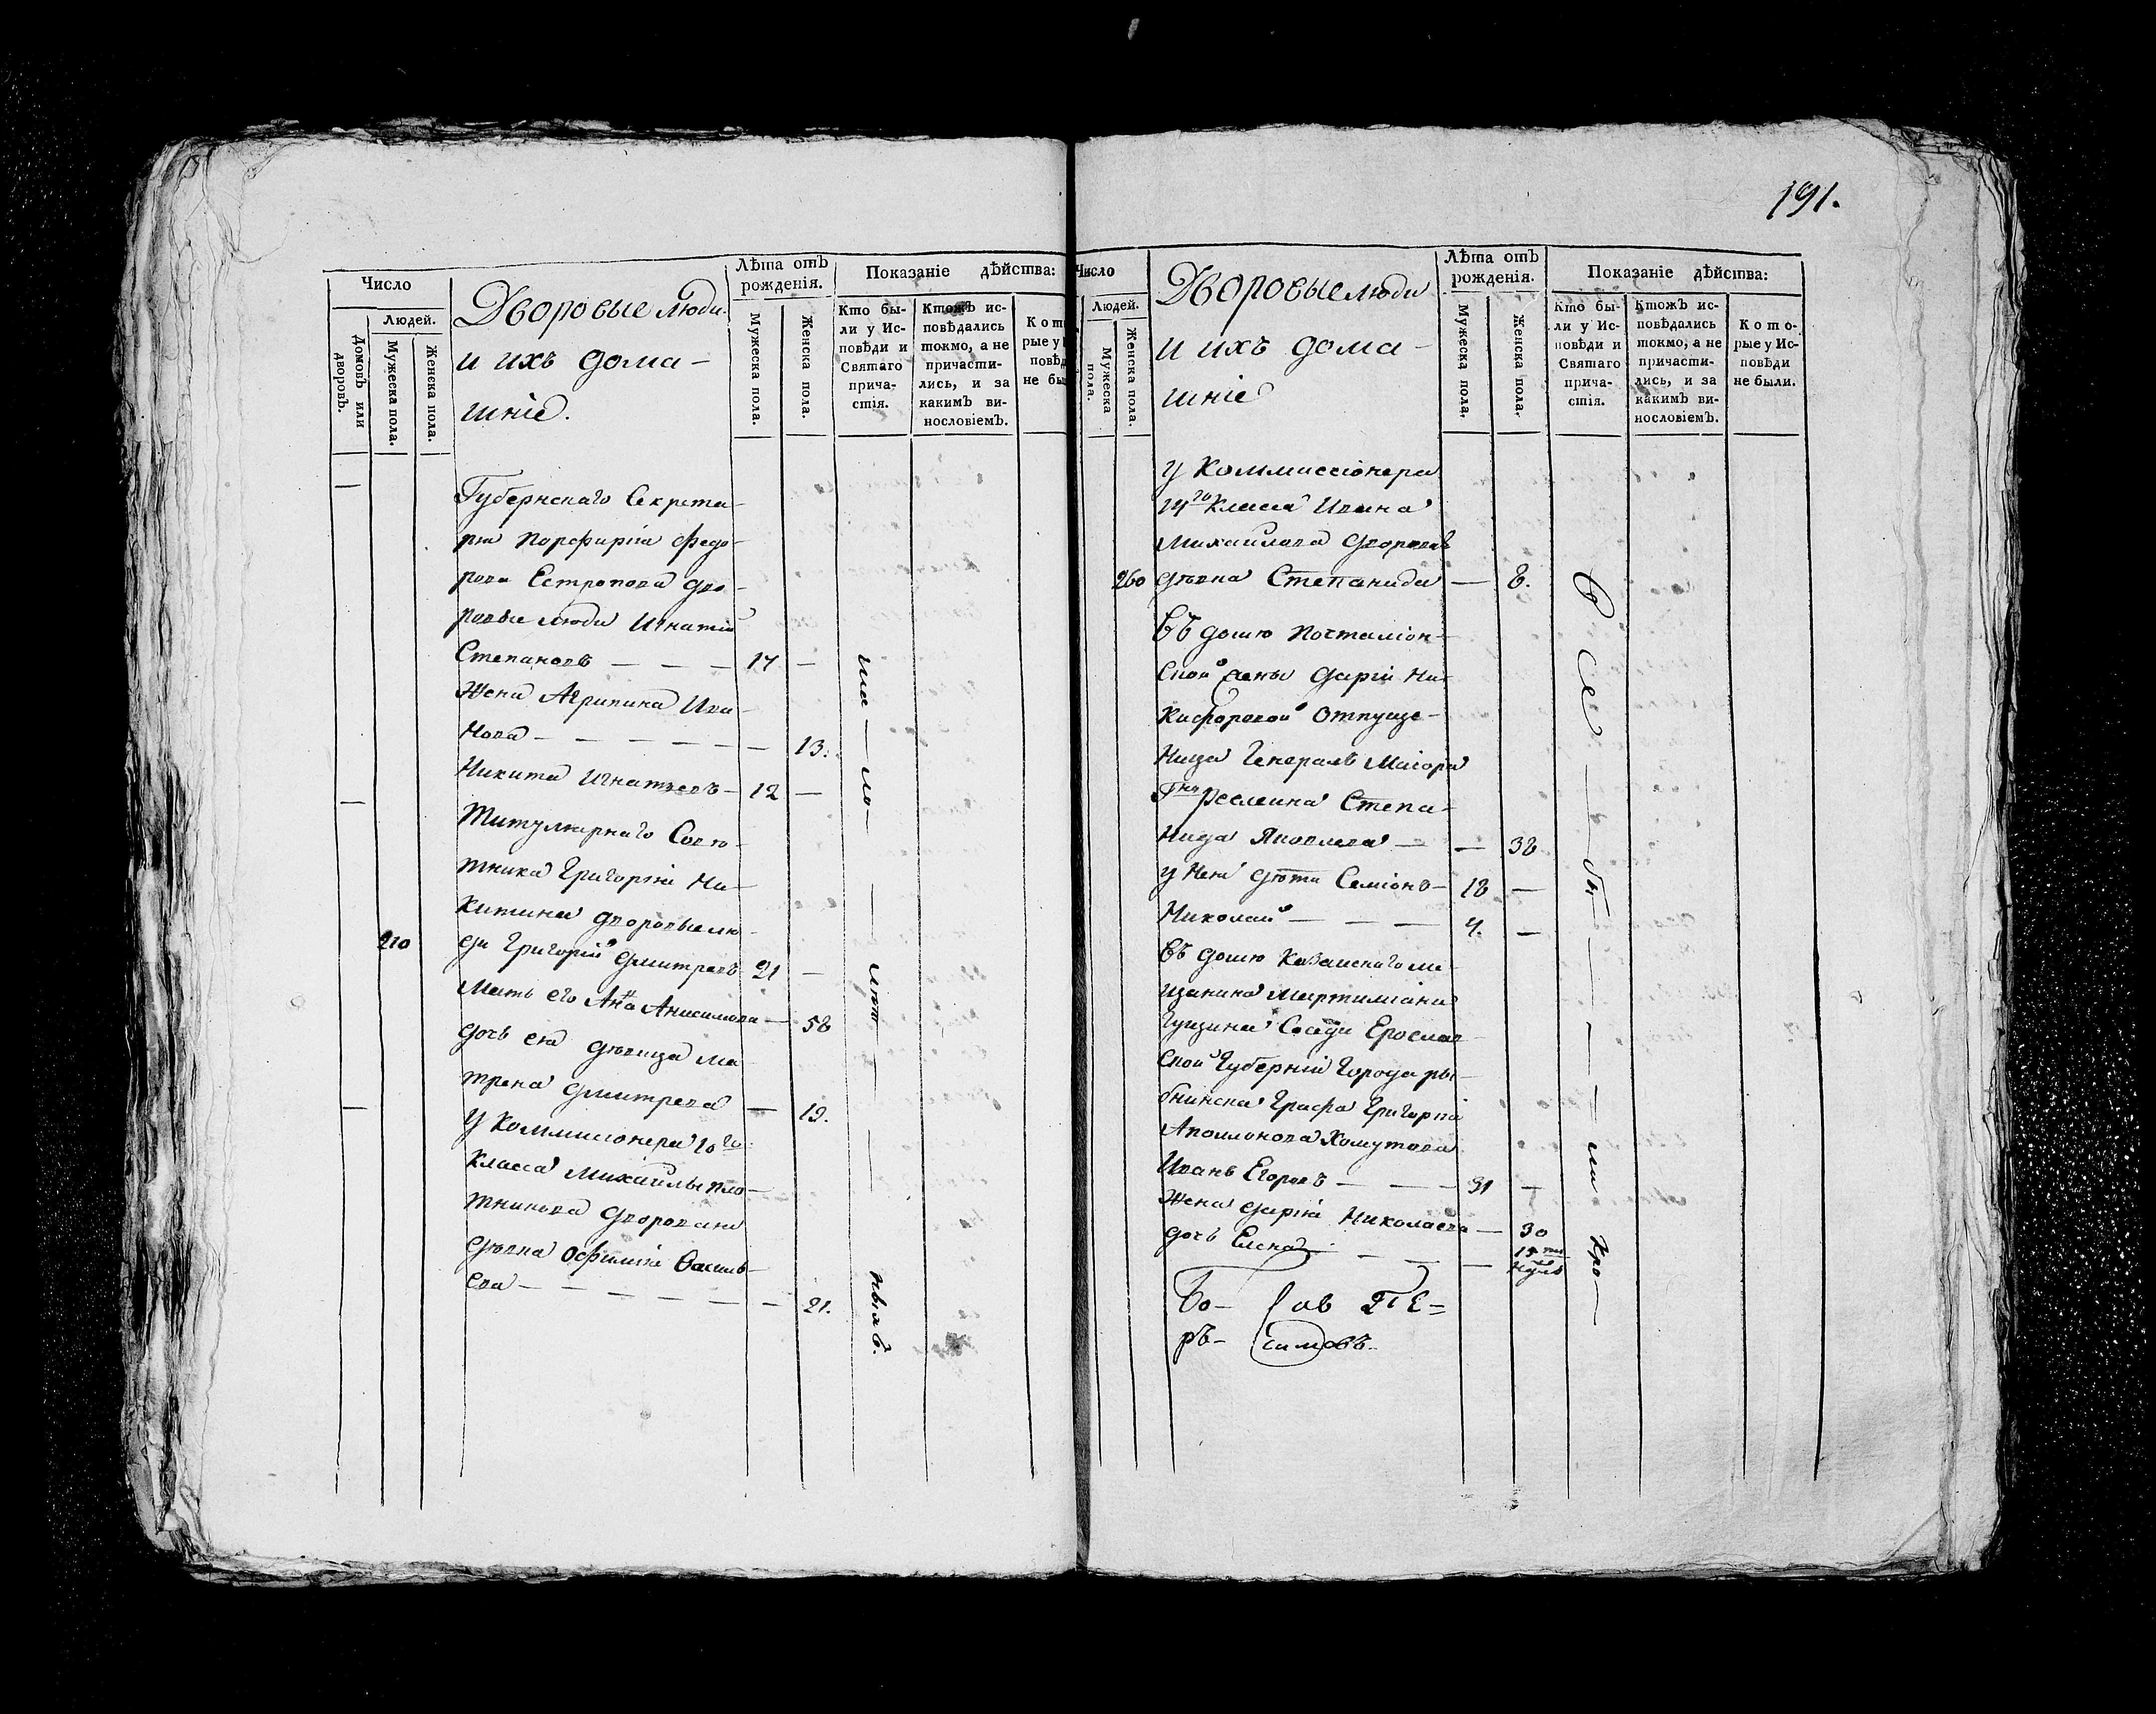 191.
Число
Людей.
Домовъ или дворовъ.
Мужеска пола.
Женска пола.
Дворовые люди
и ихъ дома-
шніе.
Лѣта отъ рожденія.
Мужеска пола.
Женска пола.
Показаніе дѣйства:
Кто бы-
ли у Ис-
повѣди и
Святаго
прича-
стія.
Ктожъ ис-
повѣдались
токмо, а не
причасти-
лись, и за
какимъ ви-
нословіемъ.
Кот
рые у
повѣд
не бы
Губернскаго Секрета-
ря Порфирія Федо-
рова Естропова дво-
ровые люди Игнатій
Степановъ — — — 17 —
Жена Агрипина Ива-
нова — — — — — — 13.
Никита Игнатьевъ — 12 —
Титулярнаго Совѣ-
тника Григорія Ни-
китина дворовые лю-
210 ди Григорій Дмитревъ 21 —
Мать его Анна Анисимова — 58
дочь ея дѣвица Ма-
трена Дмитрева — 19.
У Коммиссіонера 10го
класса Михайлы Пло-
тникова дворовая
дѣвка Офимія Василь-
ева — — — — — — 21.
Число
Людей.
Мужеска пола.
Женска пола.
Дворовые люди
и ихъ дома-
шніе
Лѣта отъ
рожденія.
Мужеска пола,
Женска пола,
Показаніе дѣйства:
Кто бы-
ли у Ис-
повѣди и
Святаго
прича-
стія.
Ктожъ ис-
повѣдались
токмо, а не
причасти-
лись, и за
какимъ ви-
нословіемъ.
Кото-
рые у Ис-
повѣди
не были.
у Коммиссіонера
14го Класса Ивана
Михайлова дворовая
260 дѣвка Степанида — 8.
Въ домѣ Почталіон-
ской жены Дарьи Ни-
кифоровой отпуще-
ница Генералъ Маіора
Степа-
нида Яковлева — — 38
у нея дѣти Семіонъ — 18 —
Николай — — — 4. —
Въ домѣ Казанскаго мѣ-
щанина Мартиміана
Ерослав-
ской Губерніи города Ры-
бинска Графа Григорія
Аполлонова Хомутова
Иванъ Егоровъ — — — 31 —
Жена Дарія Николаева — 30
дочь Елена — — —